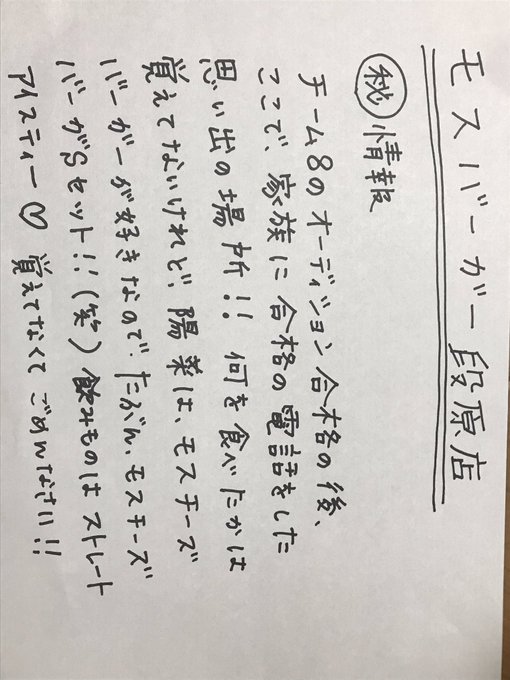 モスバーガー段原店
㊙情報
チーム8のオーディション合格の後、
ここで、家族に合格の電話をした
思い出の場所!! 何を食べたかは
覚えてないけれど、陽菜は、モスチーズ
バーガーが好きなので、たぶん、モスチーズ
バーガSセット!!(笑) 飲みものはストレート
アイスティー♡ 覚えてなくてごめんなさい!!